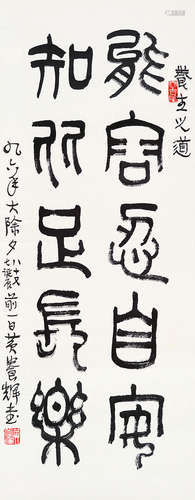 養生之道
能容忍自安
知所足長樂
九六年大除夕八十又誕辰前一日黃養輝書